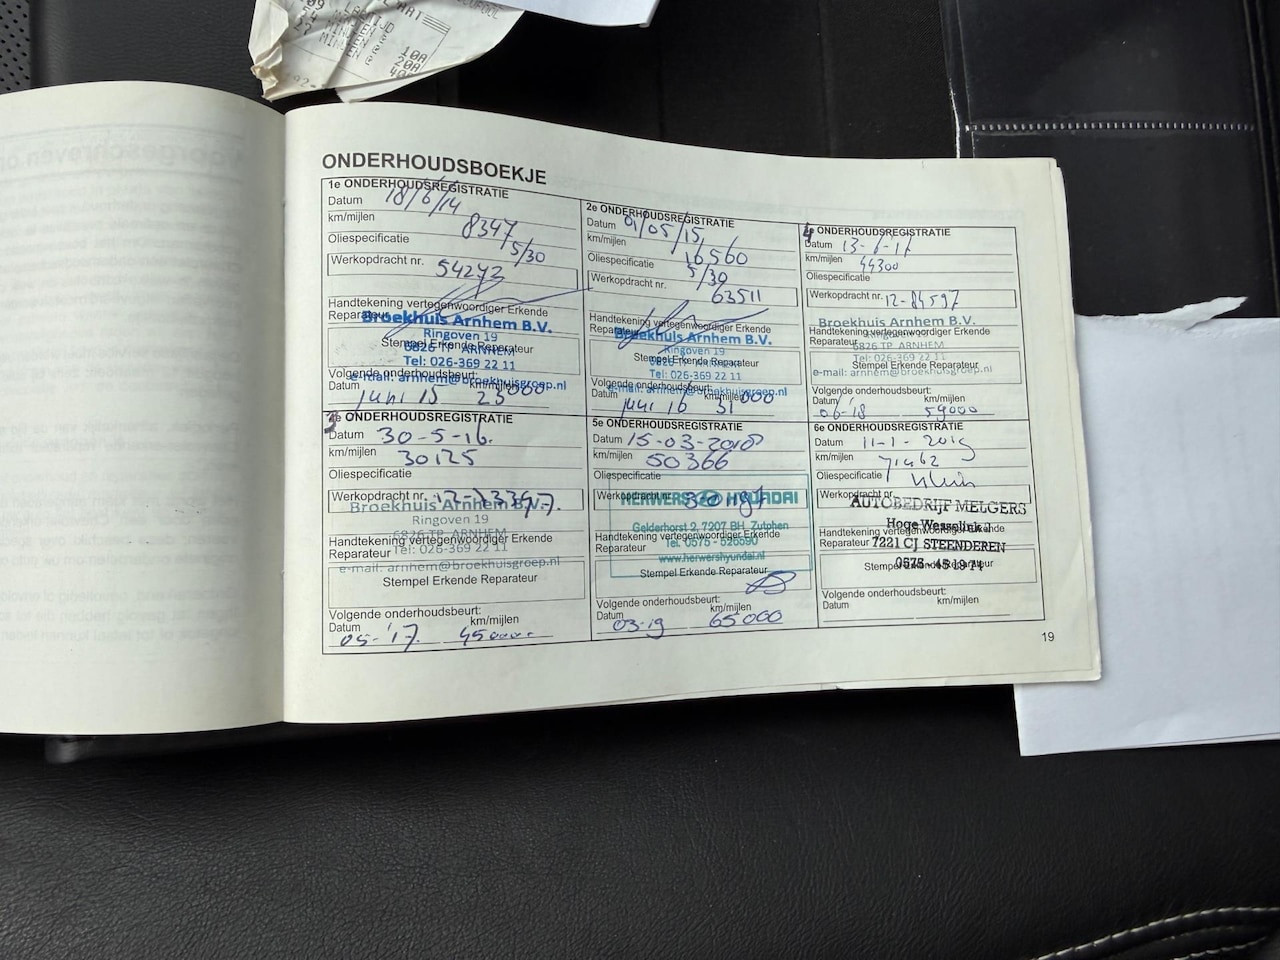 ONDERHOUDSBOEKJE
1e ONDERHOUDSREGISTRATIE
Datum 18/6/14
km/mijlen 8347
Oliespecificatie 5/30
Werkopdracht nr. 54242
Handtekening vertegenwoordiger Erkende
Reparateur
Broekhuis Arnhem B.V.
Ringoven 19
6826 TP ARNHEM
Stempel Erkende Reparateur
Tel: 026-369 22 11
e-mail: arnhem@broekhuisgroep.nl
Volgende onderhoudsbeurt:
Datum km/mijlen
juni 15 23000
2e ONDERHOUDSREGISTRATIE
Datum 01/05/15
km/mijlen 16560
Oliespecificatie 5/30
Werkopdracht nr. 63511
Handtekening vertegenwoordiger Erkende
Reparateur
Broekhuis Arnhem B.V.
Ringoven 19
6826 TP ARNHEM
Stempel Erkende Reparateur
Tel: 026-369 22 11
e-mail: arnhem@broekhuisgroep.nl
Volgende onderhoudsbeurt:
Datum km/mijlen
juni 16 31000
4e ONDERHOUDSREGISTRATIE
Datum 13-6-17
km/mijlen 44300
Oliespecificatie
Werkopdracht nr. 12-84597
Broekhuis Arnhem B.V.
Handtekening vertegenwoordiger Erkende
Reparateur
Ringoven 19
6826 TP ARNHEM
Tel: 026-369 22 11
Stempel Erkende Reparateur
e-mail: arnhem@broekhuisgroep.nl
Volgende onderhoudsbeurt:
Datum km/mijlen
06-18 59000
3e ONDERHOUDSREGISTRATIE
Datum 30-5-16.
km/mijlen 30125
Oliespecificatie
Werkopdracht nr.
Broekhuis Arnhem B.V.
Ringoven 19
6826 TP ARNHEM
Handtekening vertegenwoordiger Erkende
Reparateur
Tel: 026-369 22 11
e-mail: arnhem@broekhuisgroep.nl
Stempel Erkende Reparateur
Volgende onderhoudsbeurt:
Datum km/mijlen
05-'17. 45000
5e ONDERHOUDSREGISTRATIE
Datum 15-03-2018
km/mijlen 50366
Oliespecificatie
Werkopdracht nr.
HERWERS HYUNDAI
Gelderhorst 2, 7207 BH Zutphen
Handtekening vertegenwoordiger Erkende
Reparateur
Tel. 0575 - 526590
www.herwershyundai.nl
Stempel Erkende Reparateur
Volgende onderhoudsbeurt:
Datum km/mijlen
03-19 65000
6e ONDERHOUDSREGISTRATIE
Datum 11-1-2019
km/mijlen 71462
Oliespecificatie
Werkopdracht nr.
AUTOBEDRIJF MELGERS
Hoge Wesselink 7
Handtekening vertegenwoordiger Erkende
Reparateur
7221 CJ STEENDEREN
Stempel Erkende Reparateur
0575-451974
Volgende onderhoudsbeurt:
Datum km/mijlen
19